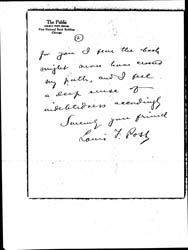 The Public
First National Bank Building
Chicago
2
for you I fear the book
might never have crossed
my path, and I feel
a deep sense of
indebtedness accordingly
Sincerely your friend
Louis F. Post